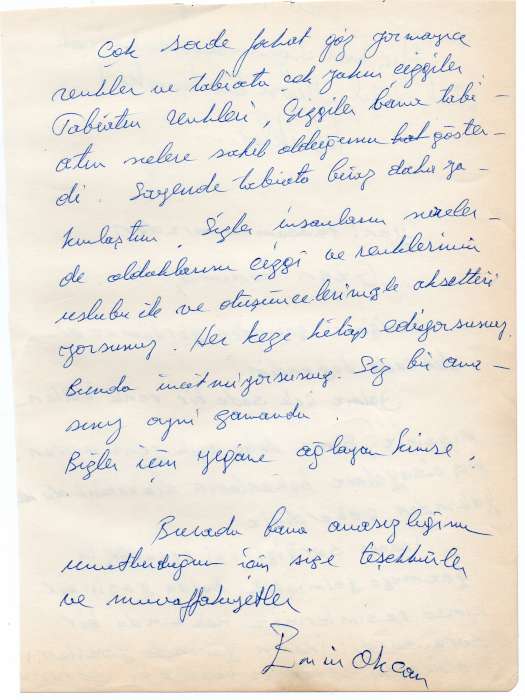 Çok sade fakat göz yormayıca
renkler ve tabiata çok yakın çizgiler
Tabiatın renkleri, Çizgiler bana tabi-
atın nelere sahib olduğunu göster-
di. Sayende tabiata biraz daha ya-
kınlaştım. Sizler insanların nereler-
de olduklarını çizgi ve renklerinin
uslubu ile ve düşüncelerinizle aksettiri
yorsunuz. Her keze hitap ediyorsunuz.
Bunda incitmiyorsunuz. Siz bir ana-
sınız ayni zamanda.
Bizler için yegane ağlayan kimse.
Burada bana anasızlığımı
unutturduğun için size teşekkürler
ve muvaffakiyetler
Emin Okcan